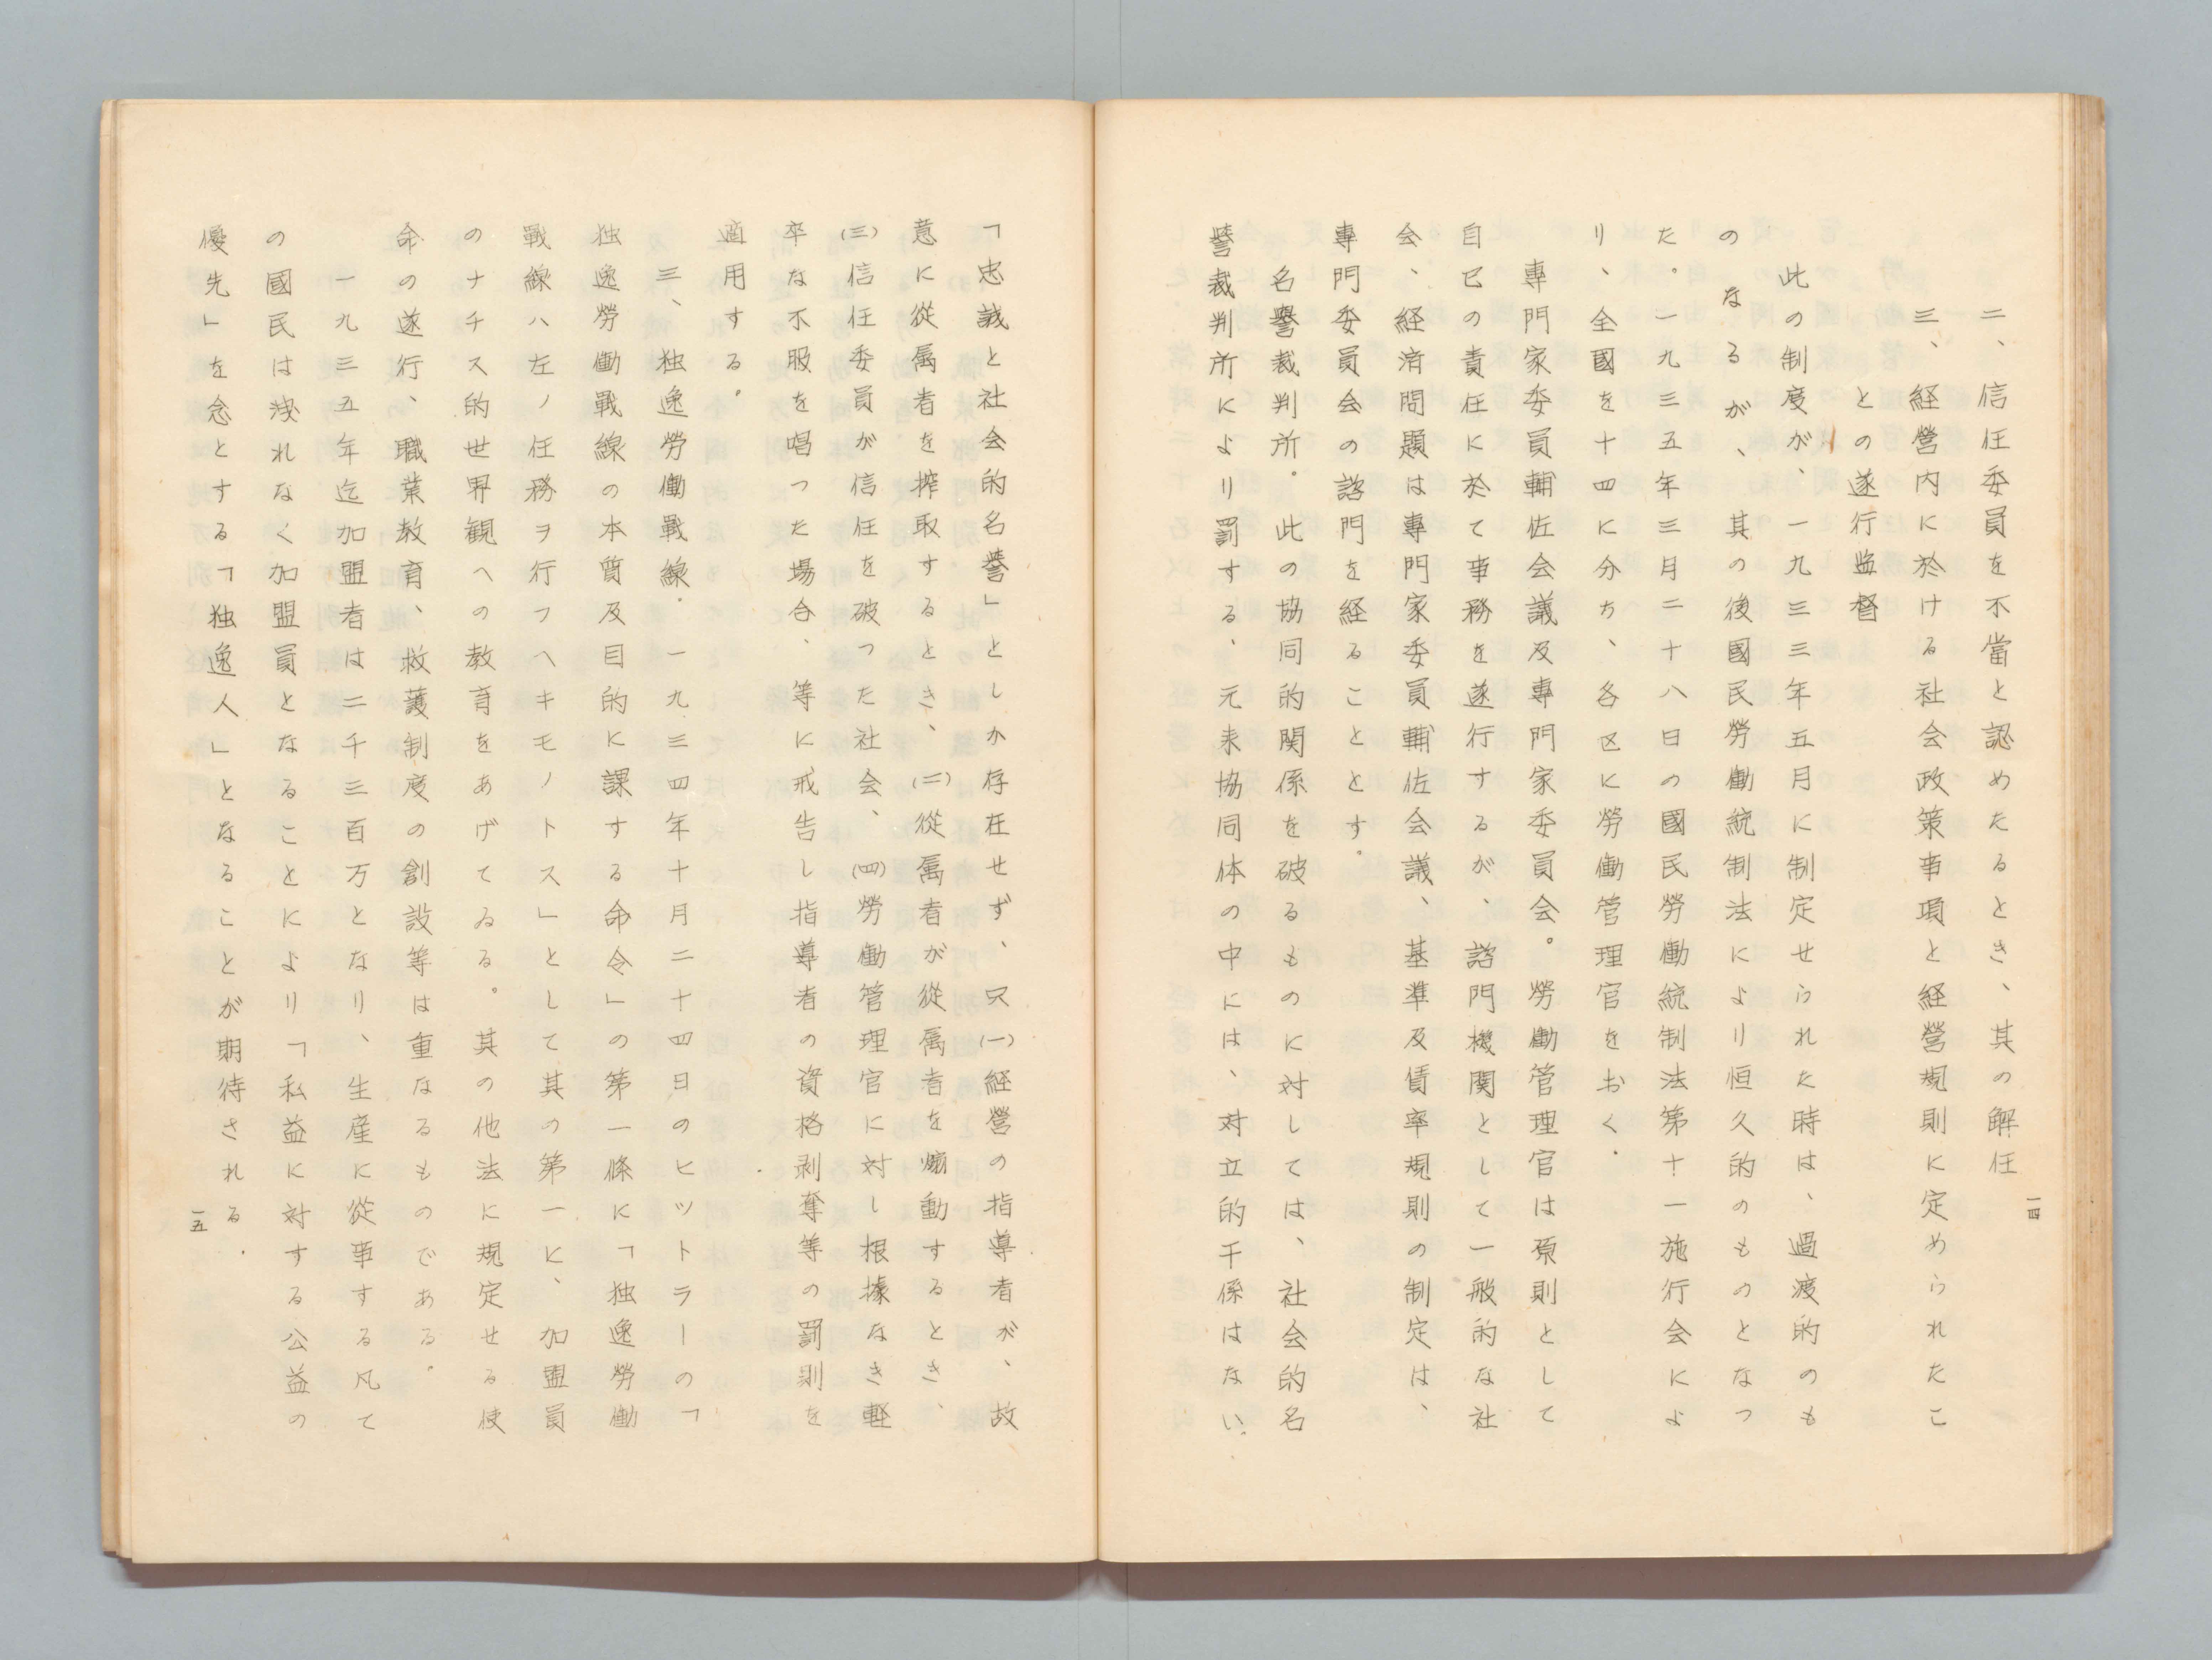 二、信任委員を不當と認めたるとき、其の解任
三、経營内に於ける社会政策事項と経營規則に定められたこ
との遂行监督
此の制度が、一九三三年五月に制定せられた時は、過渡的のも
のなるが、其の後國民勞働統制法により恒久的のものとなつ
た。一九三五年三月二十八日の國民勞働統制法第十一施行会によ
り、全國を十四に分ち、各区に勞働管理官をおく．
專門家委員輔佐会議及專門家委員会。勞働管理官は原則として
自已の責任に於て事務を遂行するが、諮門機関として一般的な社
会、経済問題は專門家委員輔佐会議、基準及賃率規則の制定は、
專門委員会の諮門を経ることとす。
名譽裁判所。此の協同的関係を破るものに対しては、社会的名
譽裁判所により罰する、元来協同体の中には、対立的干係はない．
一四
「忠誠と社会的名譽」としか存在せず、只(一)経營の指導者が、故
意に從属者を搾取するとき、(二)從属者が從属者を煽動するとき、
(三)信任委員が信任を破つた社会、(四)勞働管理官に対し根據なき軽
卒な不服を唱つた場合、等に戒告し指導者の資格剥奪等の罰則を
適用する。
三、独逸勞働戰線．一九三四年十月二十四日のヒットラーの「
独逸勞働戰線の本質及目的に課する命令」の第一條に「独逸勞働
戰線ハ左ノ任務ヲ行フヘキモノトス」として其の第一に、加盟員
のナチス的世界観への教育をあげてゐる。其の他法に規定せる使
命の遂行、職業教育、救護制度の創設等は重なるものである。
一九三五年迄加盟者は二千三百万となり、生産に從事する凡て
の國民は洩れなく加盟員となることにより「私益に対する公益の
優先」を念とする「独逸人」となることが期待される．
一五